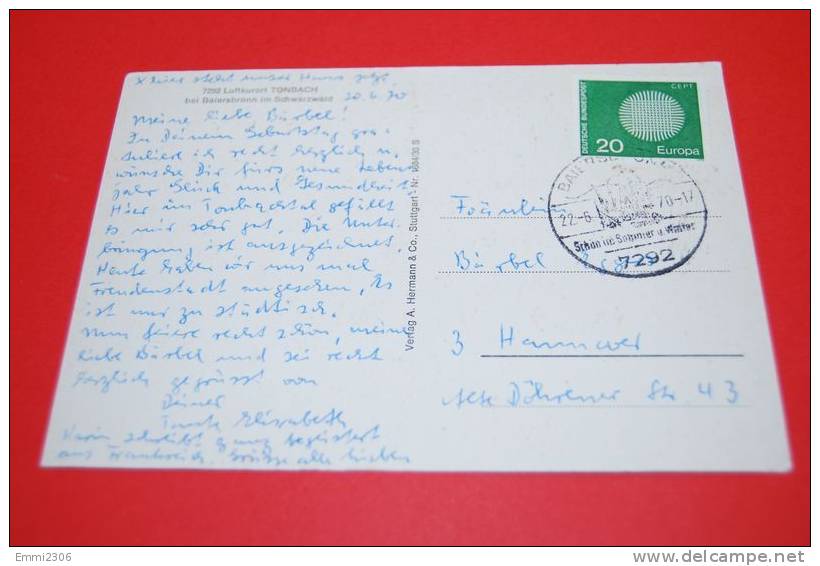 x hier steht unser Haus jetzt.
7292 Luftkurort TONBACH
bei Baiersbronn im Schwarzwald 20.6.70
Meine liebe Bärbel!
Zu Deinem Geburtstag gra-
tuliere ich recht herzlich u.
wünsche Dir fürs neue Lebens
jahr Glück und Gesundheit!
Hier im Tonbachtal gefällt
es mir sehr gut, Die Unter-
bringung ist ausgezeichnet.
Heute haben wir uns mal
Freudenstadt angesehen, Es
ist mir zu städtisch.
Nun feiere recht schön, meine
liebe Bärbel und sei recht
herzlich gegrüsst von
Deiner
Tante Elisabeth
Karin schreibt ganz begeistert
aus Frankreich. Grüße alle lieben
Verlag A. Hermann & Co., Stuttgart - Nr.
DEUTSCHE BUNDESPOST
CEPT
20 Europa
22-6 70-17
Schön im Sommer u. Winter
7292
Fräulein
Bärbel
3 Hannover
Alte Döhrener Str. 43
Emmi2306
www.delcampe.net